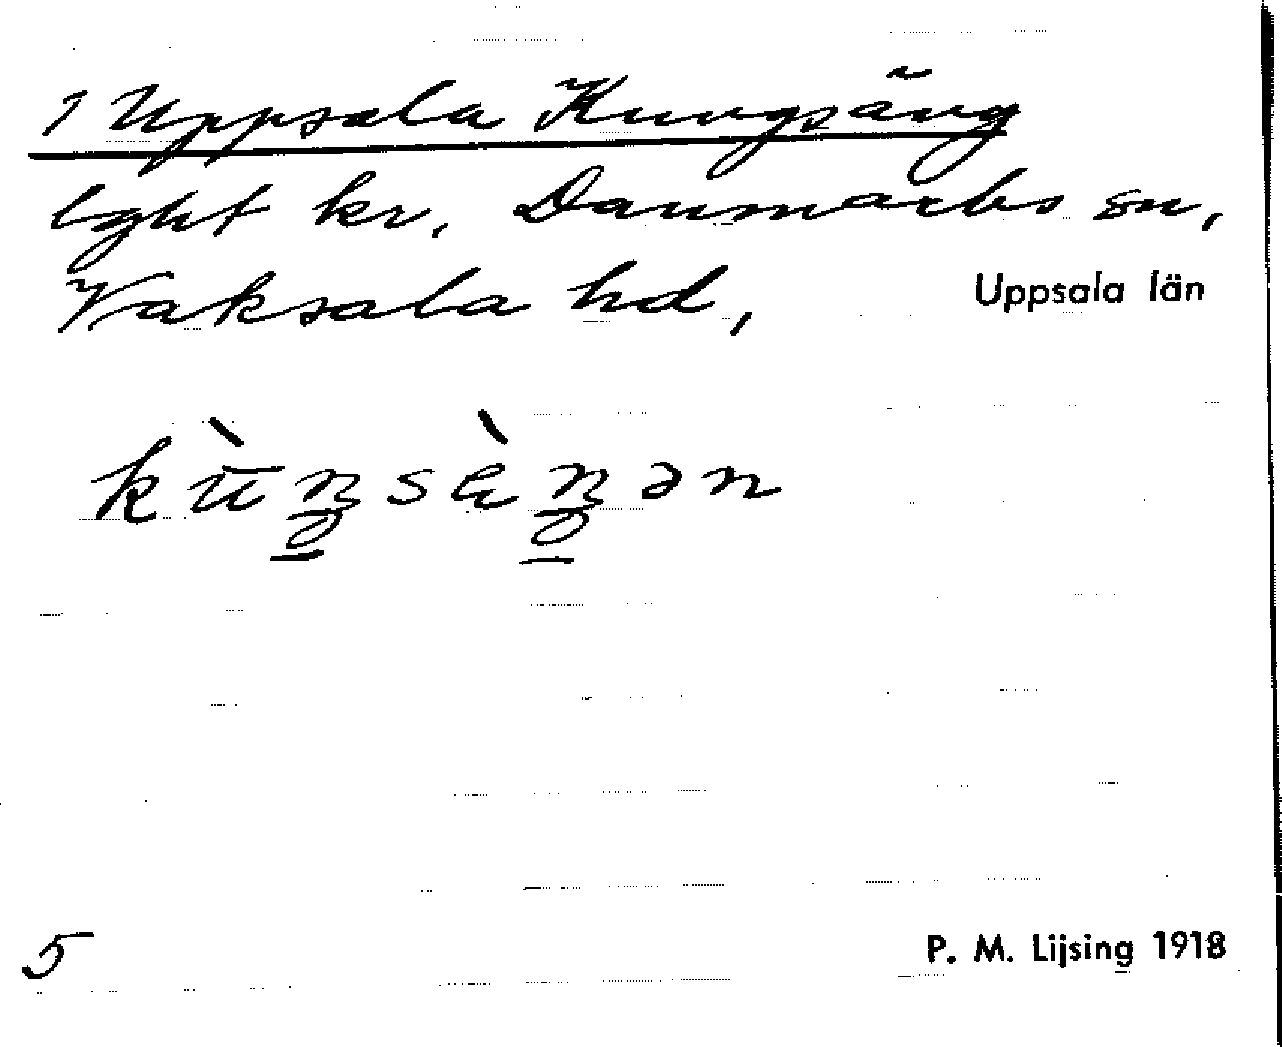 1 Uppsala Kungsäng
lght kr, Danmarks sn,
Vaksala hd, Uppsala län
5 P. M. Lijsing 1918